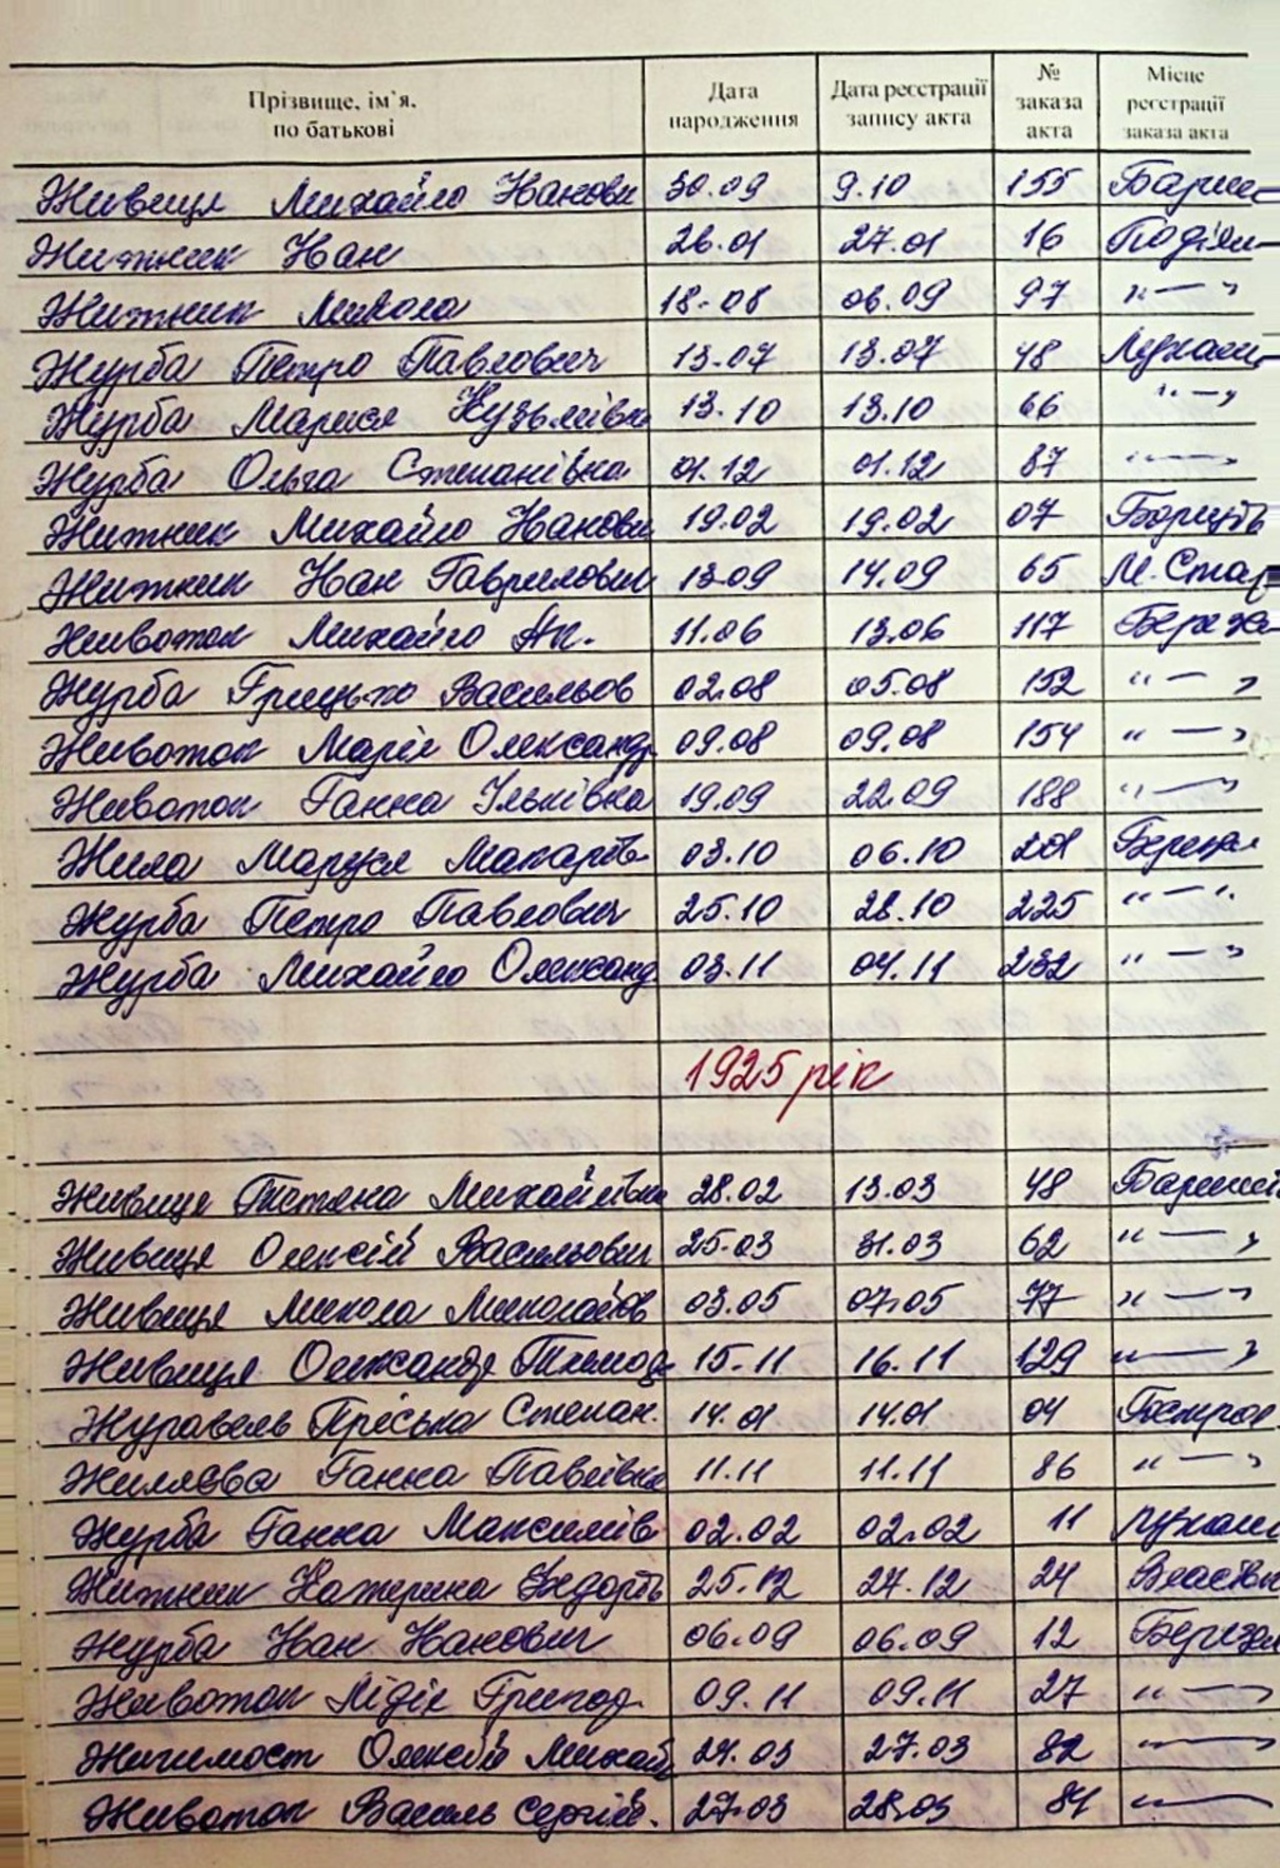 Прізвище, ім'я, по батькові Дата народження Дата реєстрації запису акта № заказа акта Місце реєстрації заказа акта
Живиця Михайло Іванови 30.09 9.10 155 Бариш
Жижник Іван 26.01 27.01 16 Поділи
Жижник Микола 18.08 06.09 97 "—"
Журба Петро Павлович 13.07 13.07 48 Лукаш
Журба Марися Кузьмівна 13.10 13.10 66 "—"
Журба Ольга Степанівна 01.12 01.12 87 "—"
Жижник Михайло Іванови 19.02 19.02 07 Борщів
Жижник Іван Гаврилович 13.09 14.09 65 М. Стар
Животок Михайло Ан. 11.06 13.06 117 Бере
Журба Грицько Васильов 02.08 05.08 152 "—"
Животок Марія Олександр 09.08 09.08 154 "—"
Животок Ганна Ільківна 19.09 22.09 188 "—"
Жила Маруся Макарів 03.10 06.10 201 Березан
Журба Петро Павлович 25.10 28.10 225 "—"
Журба Михайло Олександ 03.11 04.11 232 "—"
1925 рік
Живиця Тетяна Михайлівна 28.02 13.03 48 Бариші
Живиця Олексій Васильович 25.03 31.03 62 "—"
Живиця Микола Миколайов 03.05 07.05 77 "—"
Живиця Олександр Тимод 15.11 16.11 129 "—"
Журавель Пріська Степан. 14.01 14.01 04 Гостро
Жиляєва Ганна Павлівна 11.11 11.11 86 "—"
Журба Ганна Максимів 02.02 02.02 11 Лукаш
Жижник Катерина Федорів 25.12 27.12 24 Власівк
Журба Іван Іванович 06.09 06.09 12 Березан
Животок Лідія Григор. 09.11 09.11 27 "—"
Жигимост Олексій Михай 24.03 27.03 82 "—"
Животок Василь Сергійо. 27.03 28.03 84 "—"